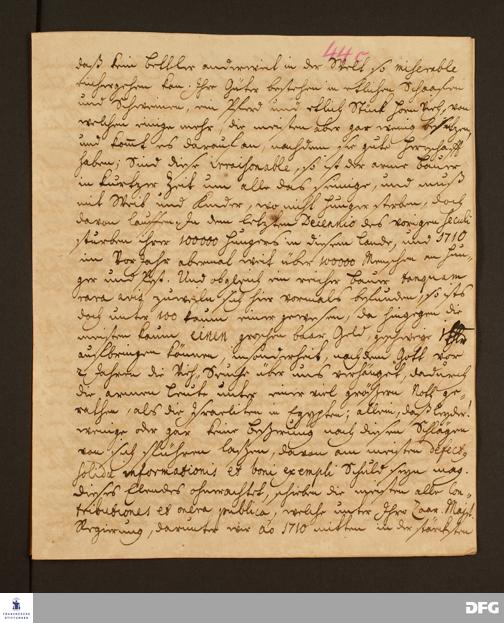 445
daß kein bettler anderweit in der Welt so miserable
einhergehen kan. Ihre Güter bestehen in etlichen Schaafen
und Schweinen, ein Pferd und etlich Stück Horn Vieh, von
welchen einige mehr, die meisten aber gar wenig besitzen,
und komt es darauf an, nachdem sie gute Herrschafft
haben; Sind diese irraisonable, so ist der arme Bauer
in kurtzer Zeit um alle das seinige, und muß
mit Weib und Kinder, wo nicht hunger sterben, doch
davon lauffen. In dem letzten Decennio des vorigen Seculi
sturben ihrer 100000 Hungers in diesem Lande, und 1710
im Vor Jahr abermal weit über 100000 Menschen an Hun-
ger und Pest. Und obgleich ein reicher Bauer tanquam
rara avis zuweiln sich hier vormals befunden, so ists
doch unter 100 kaum einer gewesen, da hingegen die
meisten kaum einen groschen baar Geld, geschweige 1
aufbringen können, insonderheit, nachdem Gott vor
2 Jahren die Vieh Seuche über uns verhänget, dadurch
die armen Leute unter einer viel größern Noth ge-
rathen, als die Israeliten in Egypten; allein, daß leyder!
wenige oder gar keine Beßerung nach diesen Schlägen
von sich spühren laßen, davon am meisten defect,
solidae informationis et boni exempli Schuld seyn mag.
Dieses Elendes ohnerachtet, schieben die meisten alle Con-
tributiones et onera publica, welche unter Ihro Czaar. Majst.
Regierung, darunter wir ao 1710 mitten in der stärcksten
FRANCKESCHE STIFTUNGEN
DFG